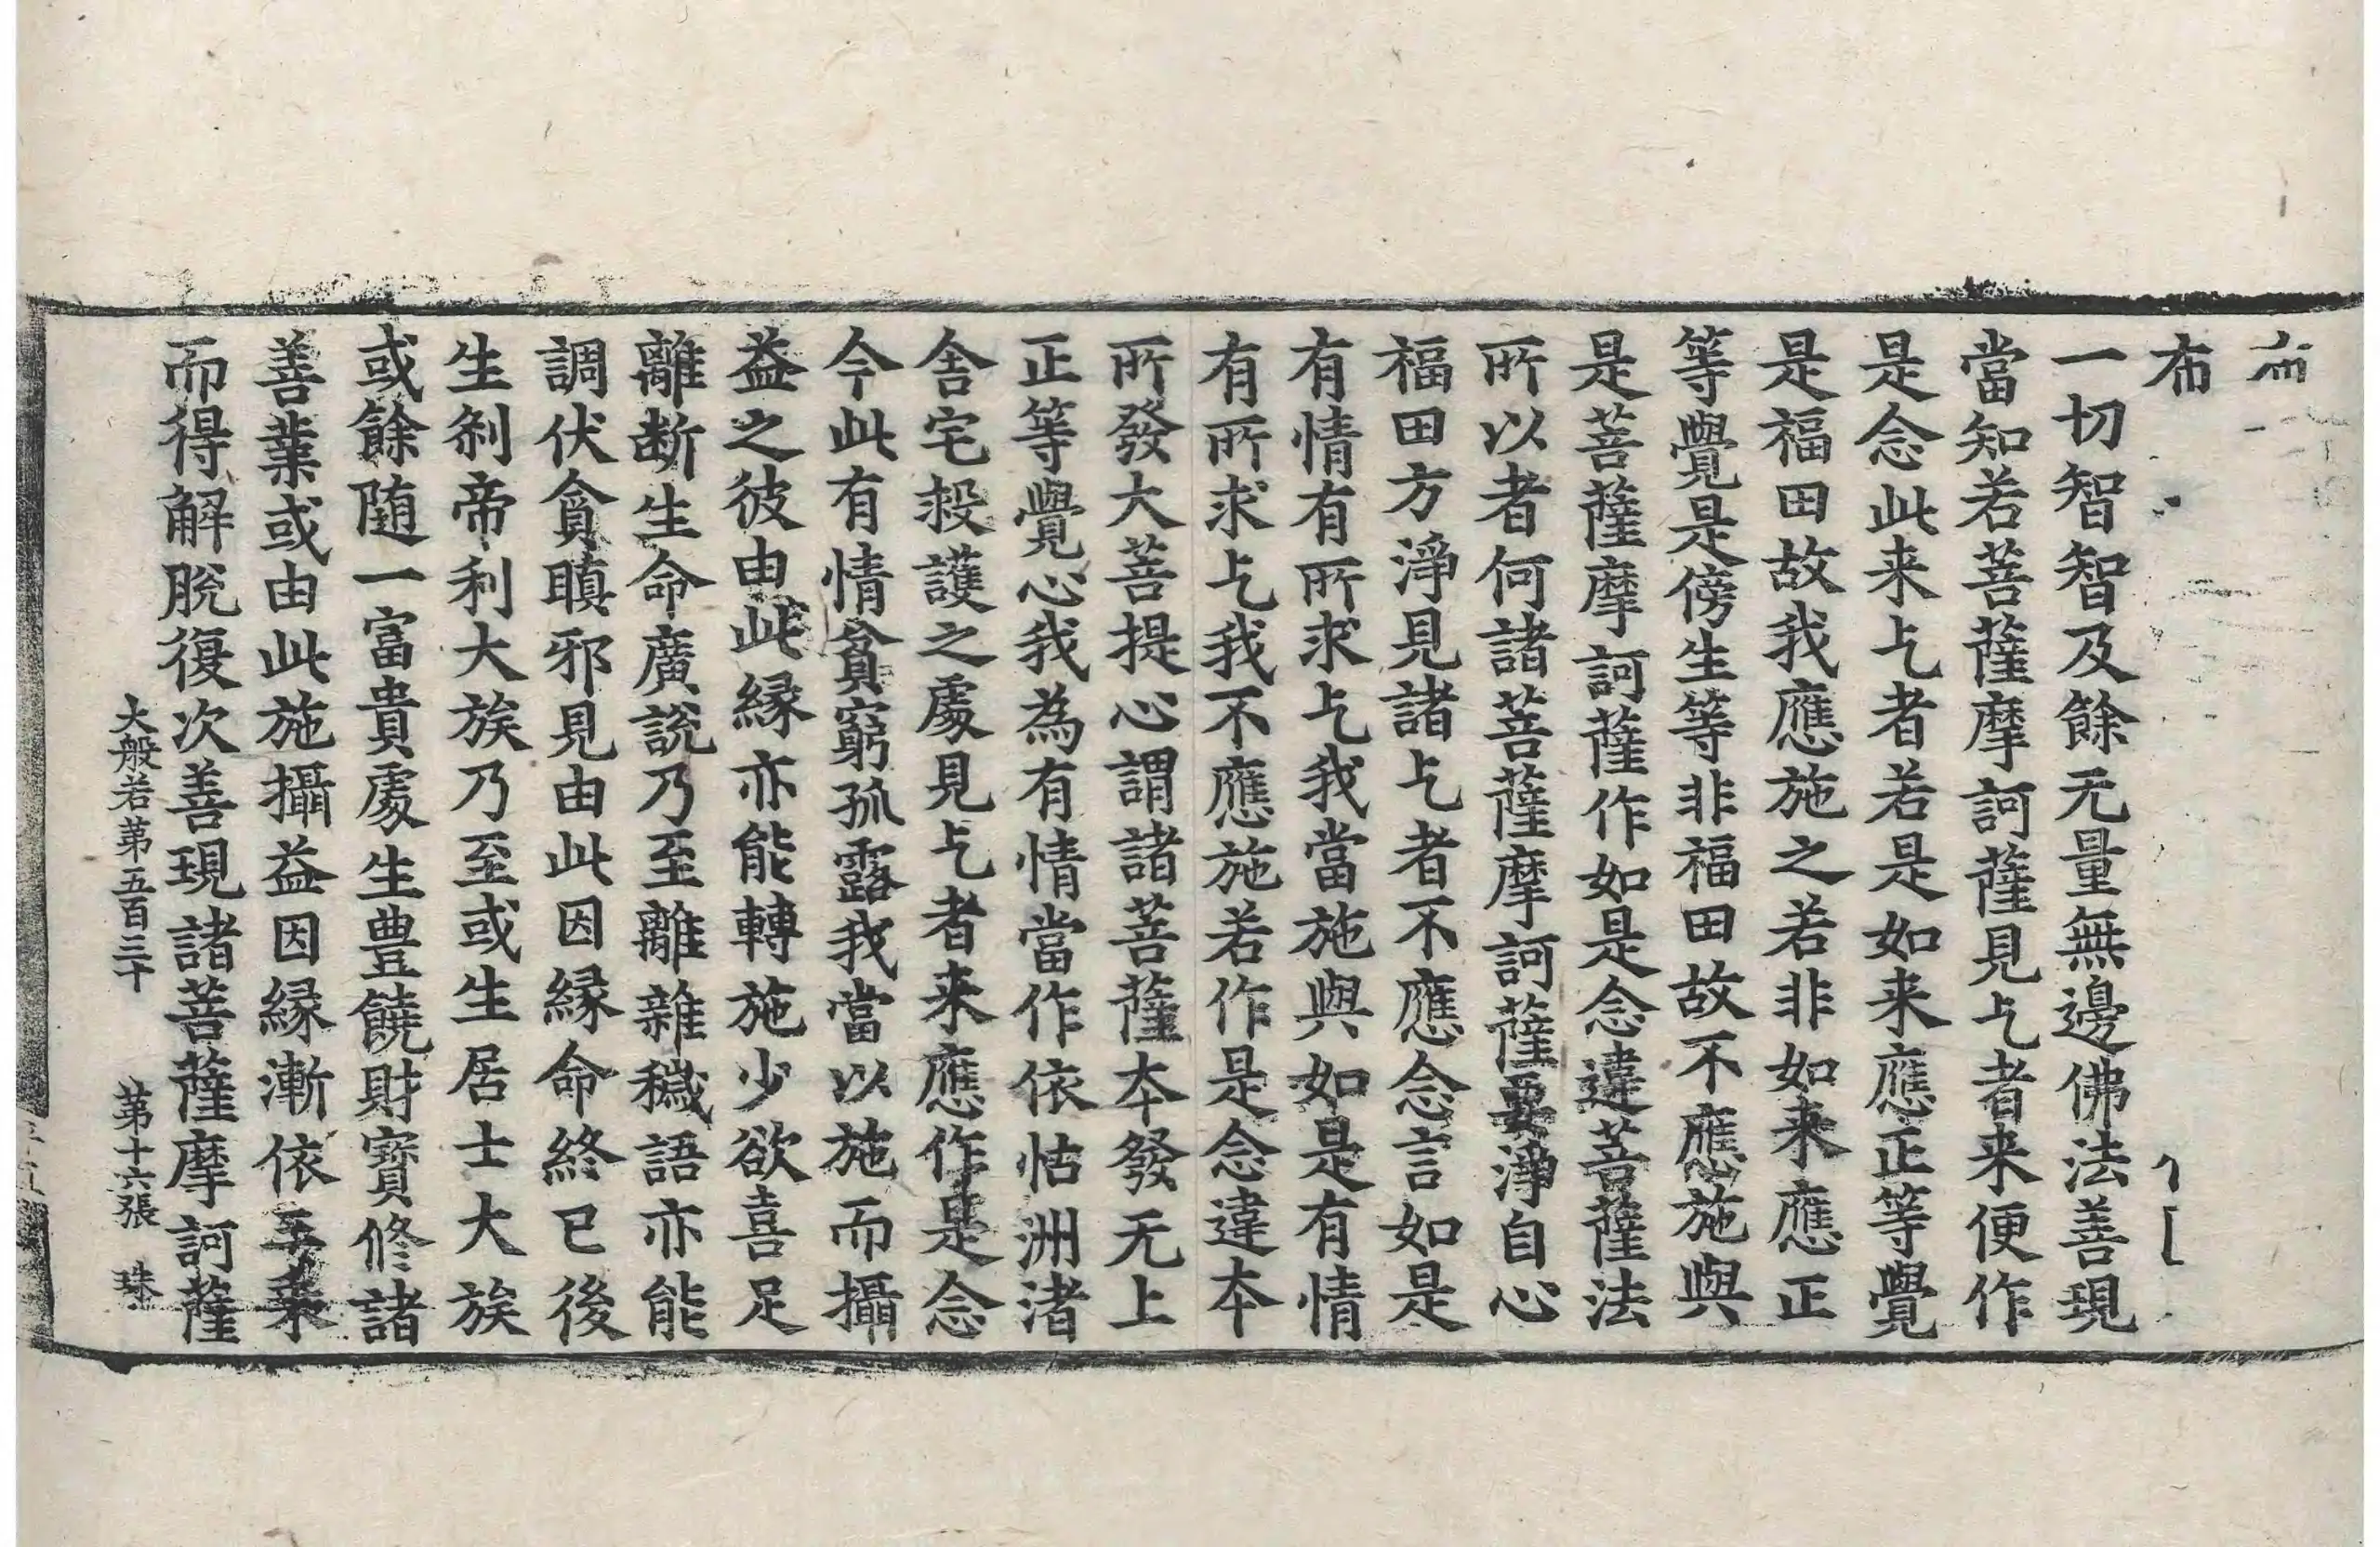 布
一切智智及餘无量無邊佛法善現
當知若菩薩摩訶薩見乞者来便作
是念此来乞者若是如来應正等覺
是福田故我應施之若非如来應正
等覺是傍生等非福田故不應施與
是菩薩摩訶薩作如是念違菩薩法
所以者何諸菩薩摩訶薩要淨自心
福田方淨見諸乞者不應念言如是
有情有所求乞我當施與如是有情
有所求乞我不應施若作是念違本
所發大菩提心謂諸菩薩本發无上
正等覺心我為有情當作依怙洲渚
舍宅救護之處見乞者来應作是念
今此有情貧窮孤露我當以施而攝
益之彼由此縁亦能轉施少欲喜足
離斷生命廣說乃至離雜穢語亦能
調伏貪瞋邪見由此因縁命終已後
生剎帝利大族乃至或生居士大族
或餘随一富貴處生豊饒財寶修諸
善業或由此施攝益因縁漸依三乗
而得解脫復次善現諸菩薩摩訶薩
大般若第五百三十 第十六張 珠